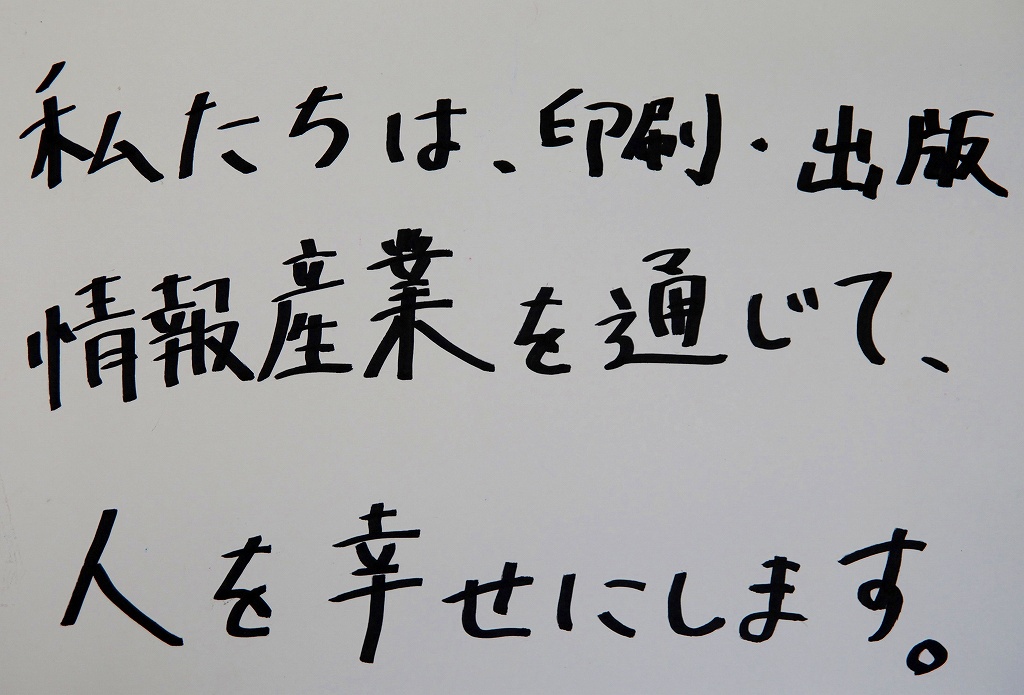 私たちは、印刷・出版
情報産業を通じて、
人を幸せにします。